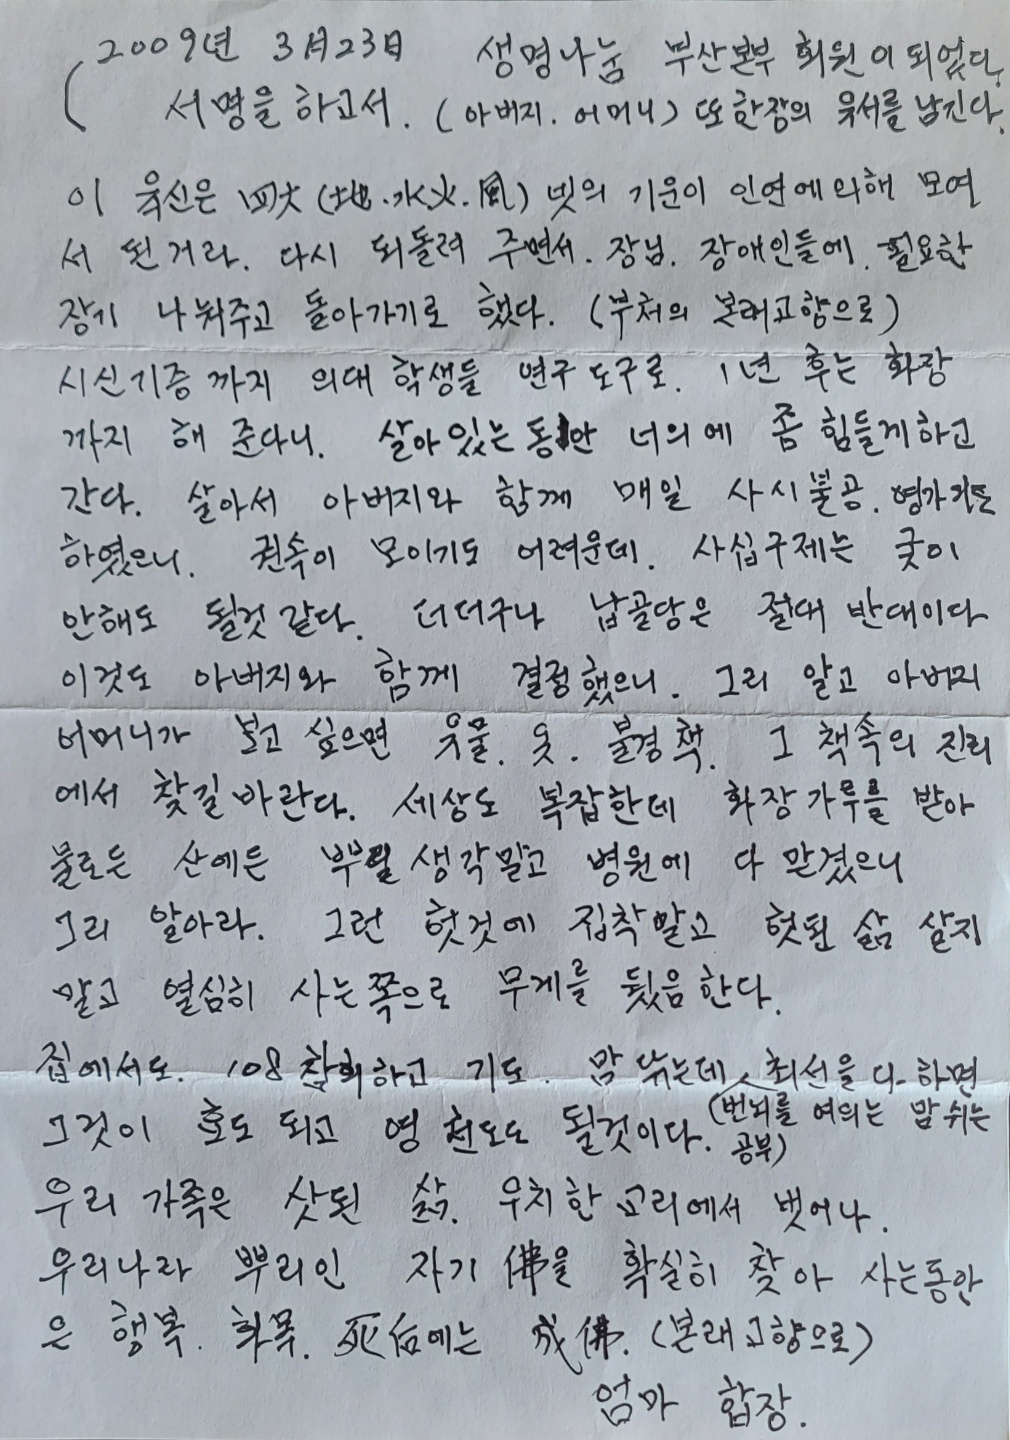 2009년 3月23日 생명나눔 부산본부 회원이 되었다.
( 서명을 하고서. (아버지. 어머니) 또 한장의 유서를 남긴다.
이 육신은 四大 (地.水火.風) 넷의 기운이 인연에 의해 모여
서 된거라. 다시 되돌려 주면서. 장님. 장애인들에. 필요한
장기 나눠주고 돌아가기로 했다. (부처의 본래고향으로)
시신기증 까지 의대 학생들 연구 도구로. 1년 후는 화장
까지 해 준다니. 살아있는 동안 너의에 좀 힘들게하고
간다. 살아서 아버지와 함께 매일 사시불공. 영가기도
하였으니. 권속이 모이기도 어려운데. 사십구제는 굿이
안해도 될것 같다. 더더구나 납골당은 절대 반대이다
이것도 아버지와 함께 결정했으니. 그리 알고 아버지
어머니가 보고 싶으면 유물. 옷. 불경책. 그 책속의 진리
에서 찾길 바란다. 세상도 복잡한데 화장 가루를 받아
물로든 산에든 뿌릴 생각말고 병원에 다 맏겼으니
그리 알아라. 그런 헛것에 집착말고 헛된 삶 살지
말고 열심히 사는쪽으로 무게를 뒀음 한다.
집에서도. 108 참회하고 기도. 맘 닦는데 최선을 다하면
그것이 효도 되고 영 천도도 될것이다. (번뇌를 여의는 맘 쉬는
공부)
우리 가족은 삿된 삶. 우치한 고리에서 벗어나.
우리나라 뿌리인 자기 佛을 확실히 찾아 사는동안
은 행복. 화목. 死后에는 成佛. (본래고향으로)
엄마 합장.